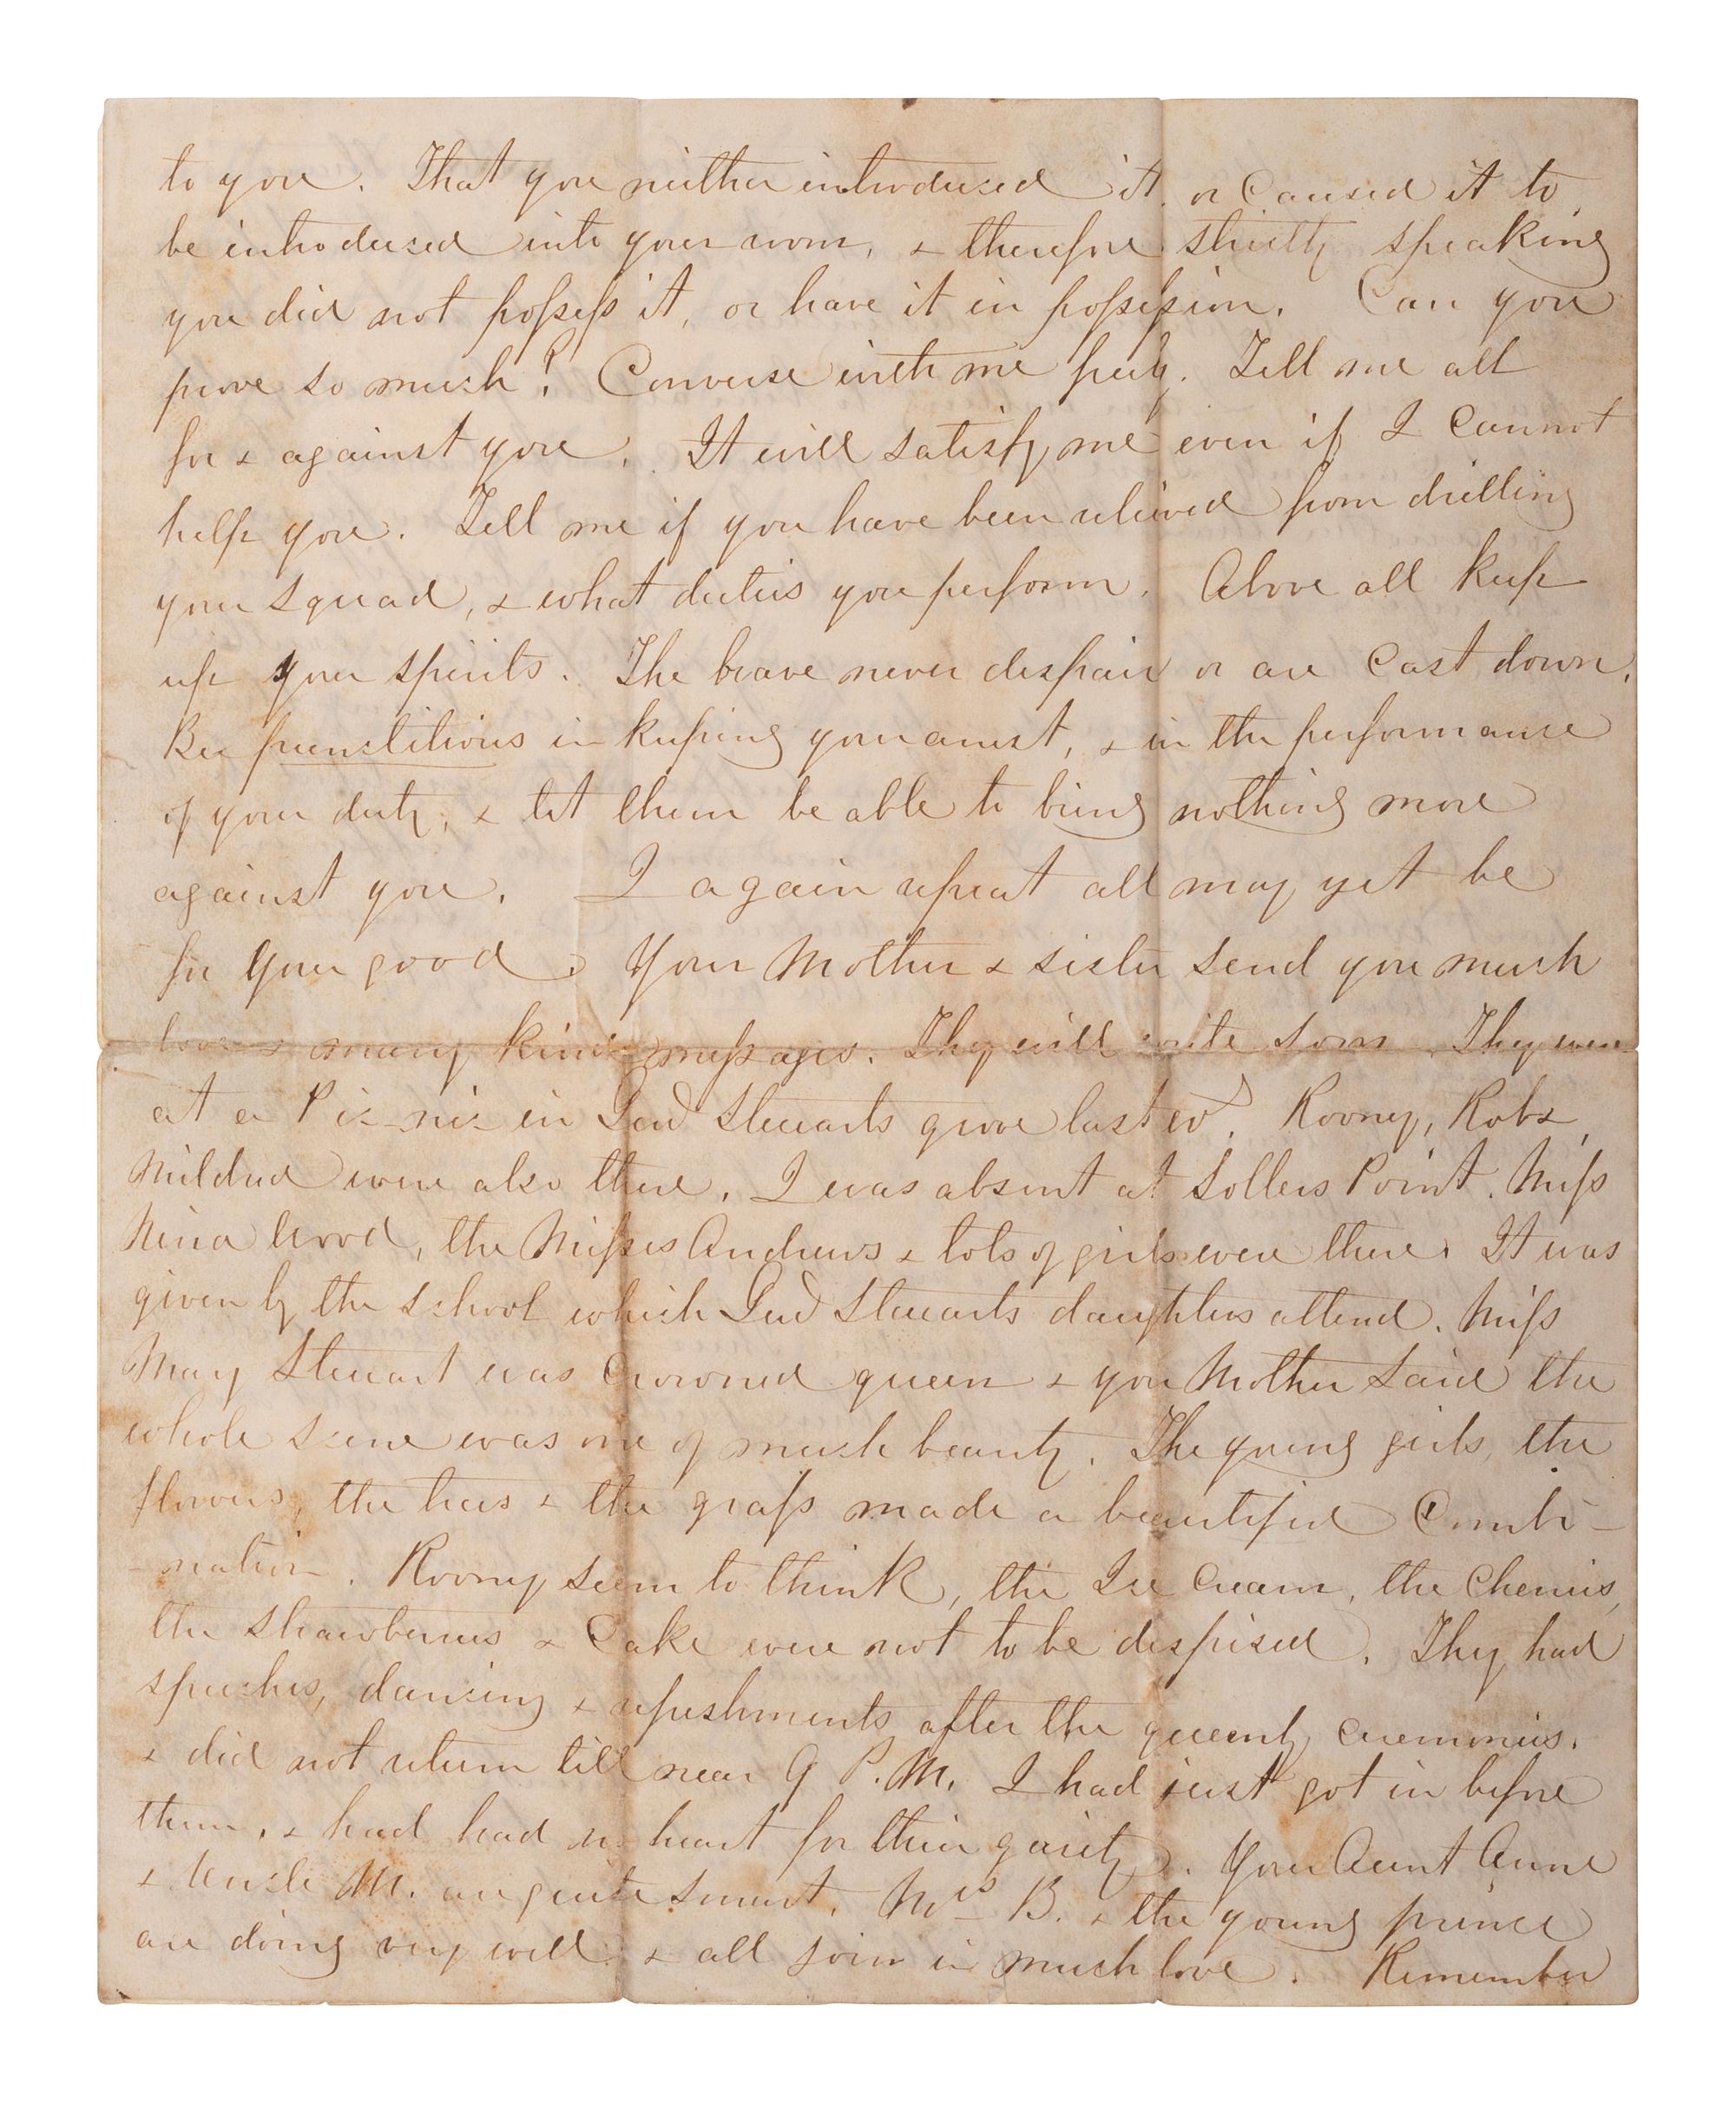 to you. That you neither introduced it, or caused it to
be introduced into your room, & therefore strictly speaking
you did not possess it, or have it in possession. Can you
prove so much? Converse with me freely. Tell me all
for & against you. It will satisfy me even if I cannot
help you. Tell me if you have been relieved from drilling
your squad, & what duties you perform. Above all keep
up your spirits. The brave never despair or are cast down.
Be punctilious in keeping your arrest, & in the performance
of your duty, & let them be able to bring nothing more
against you. I again repeat all may yet be
for your good. Your Mother & sister send you much
love & many kind messages. They will write soon. They were
at a Pic-nic in Genl Steuarts grove last evg. Rooney, Rob &
Mildred were also there. I was absent at Sollers Point. Miss
Nina Wood, the Misses Andrews & lots of girls were there. It was
given by the school which Genl Steuarts daughters attend. Miss
Mary Steuart was crowned queen & your Mother said the
whole scene was one of much beauty. The young girls, the
flowers, the trees & the grass made a beautiful Combi-
-nation. Rooney seem to think, the Ice Cream, the Cherries,
the strawberries & Cake were not to be despised. They had
speeches, dancing & refreshments after the queenly ceremonies.
& did not return till near 9 P.M. I had just got in before
them, & had had no heart for their gaiety. Your Aunt Anne
& Uncle M. are quite smart. Mrs B. & the young prince
are doing very well & all join in much love. Remember